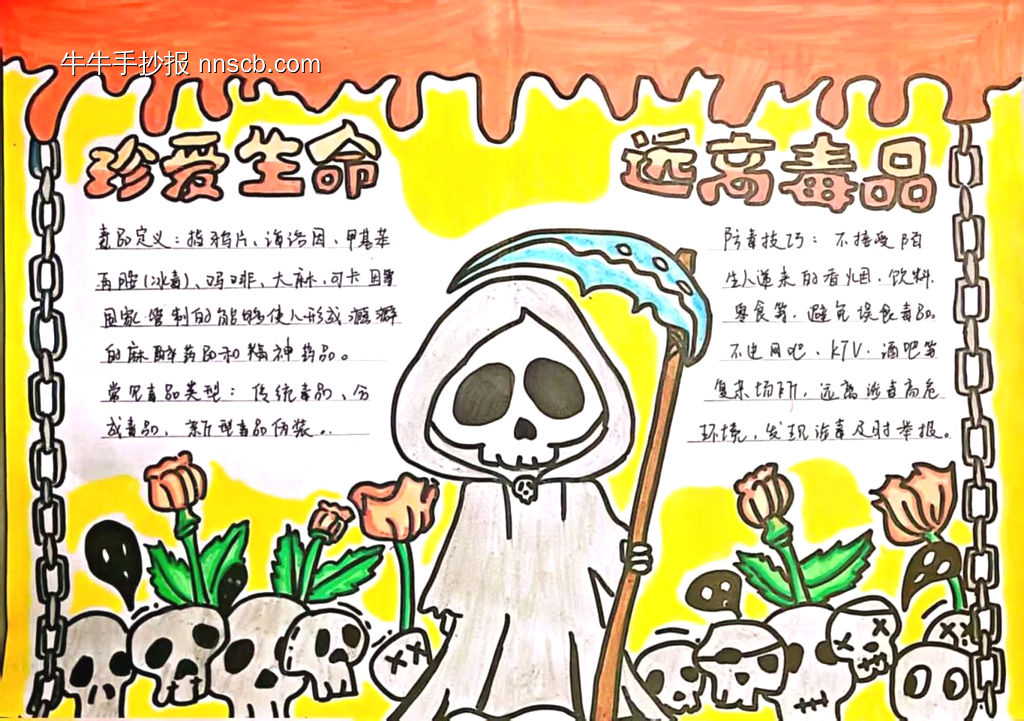 牛牛手抄报 nnscb.com
珍爱生命
远离毒品
毒品定义：指鸦片、海洛因、甲基苯
丙胺(冰毒)、吗啡、大麻、可卡因等
国家管制的能够使人形成瘾癖
的麻醉药品和精神药品。
常见毒品类型：传统毒品、合
成毒品、新型毒品伪装。
防毒技巧：不接受陌
生人递来的香烟、饮料、
零食等，避免误食毒品。
不进网吧、KTV、酒吧等
复杂场所，远离涉毒高危
环境，发现涉毒及时举报。